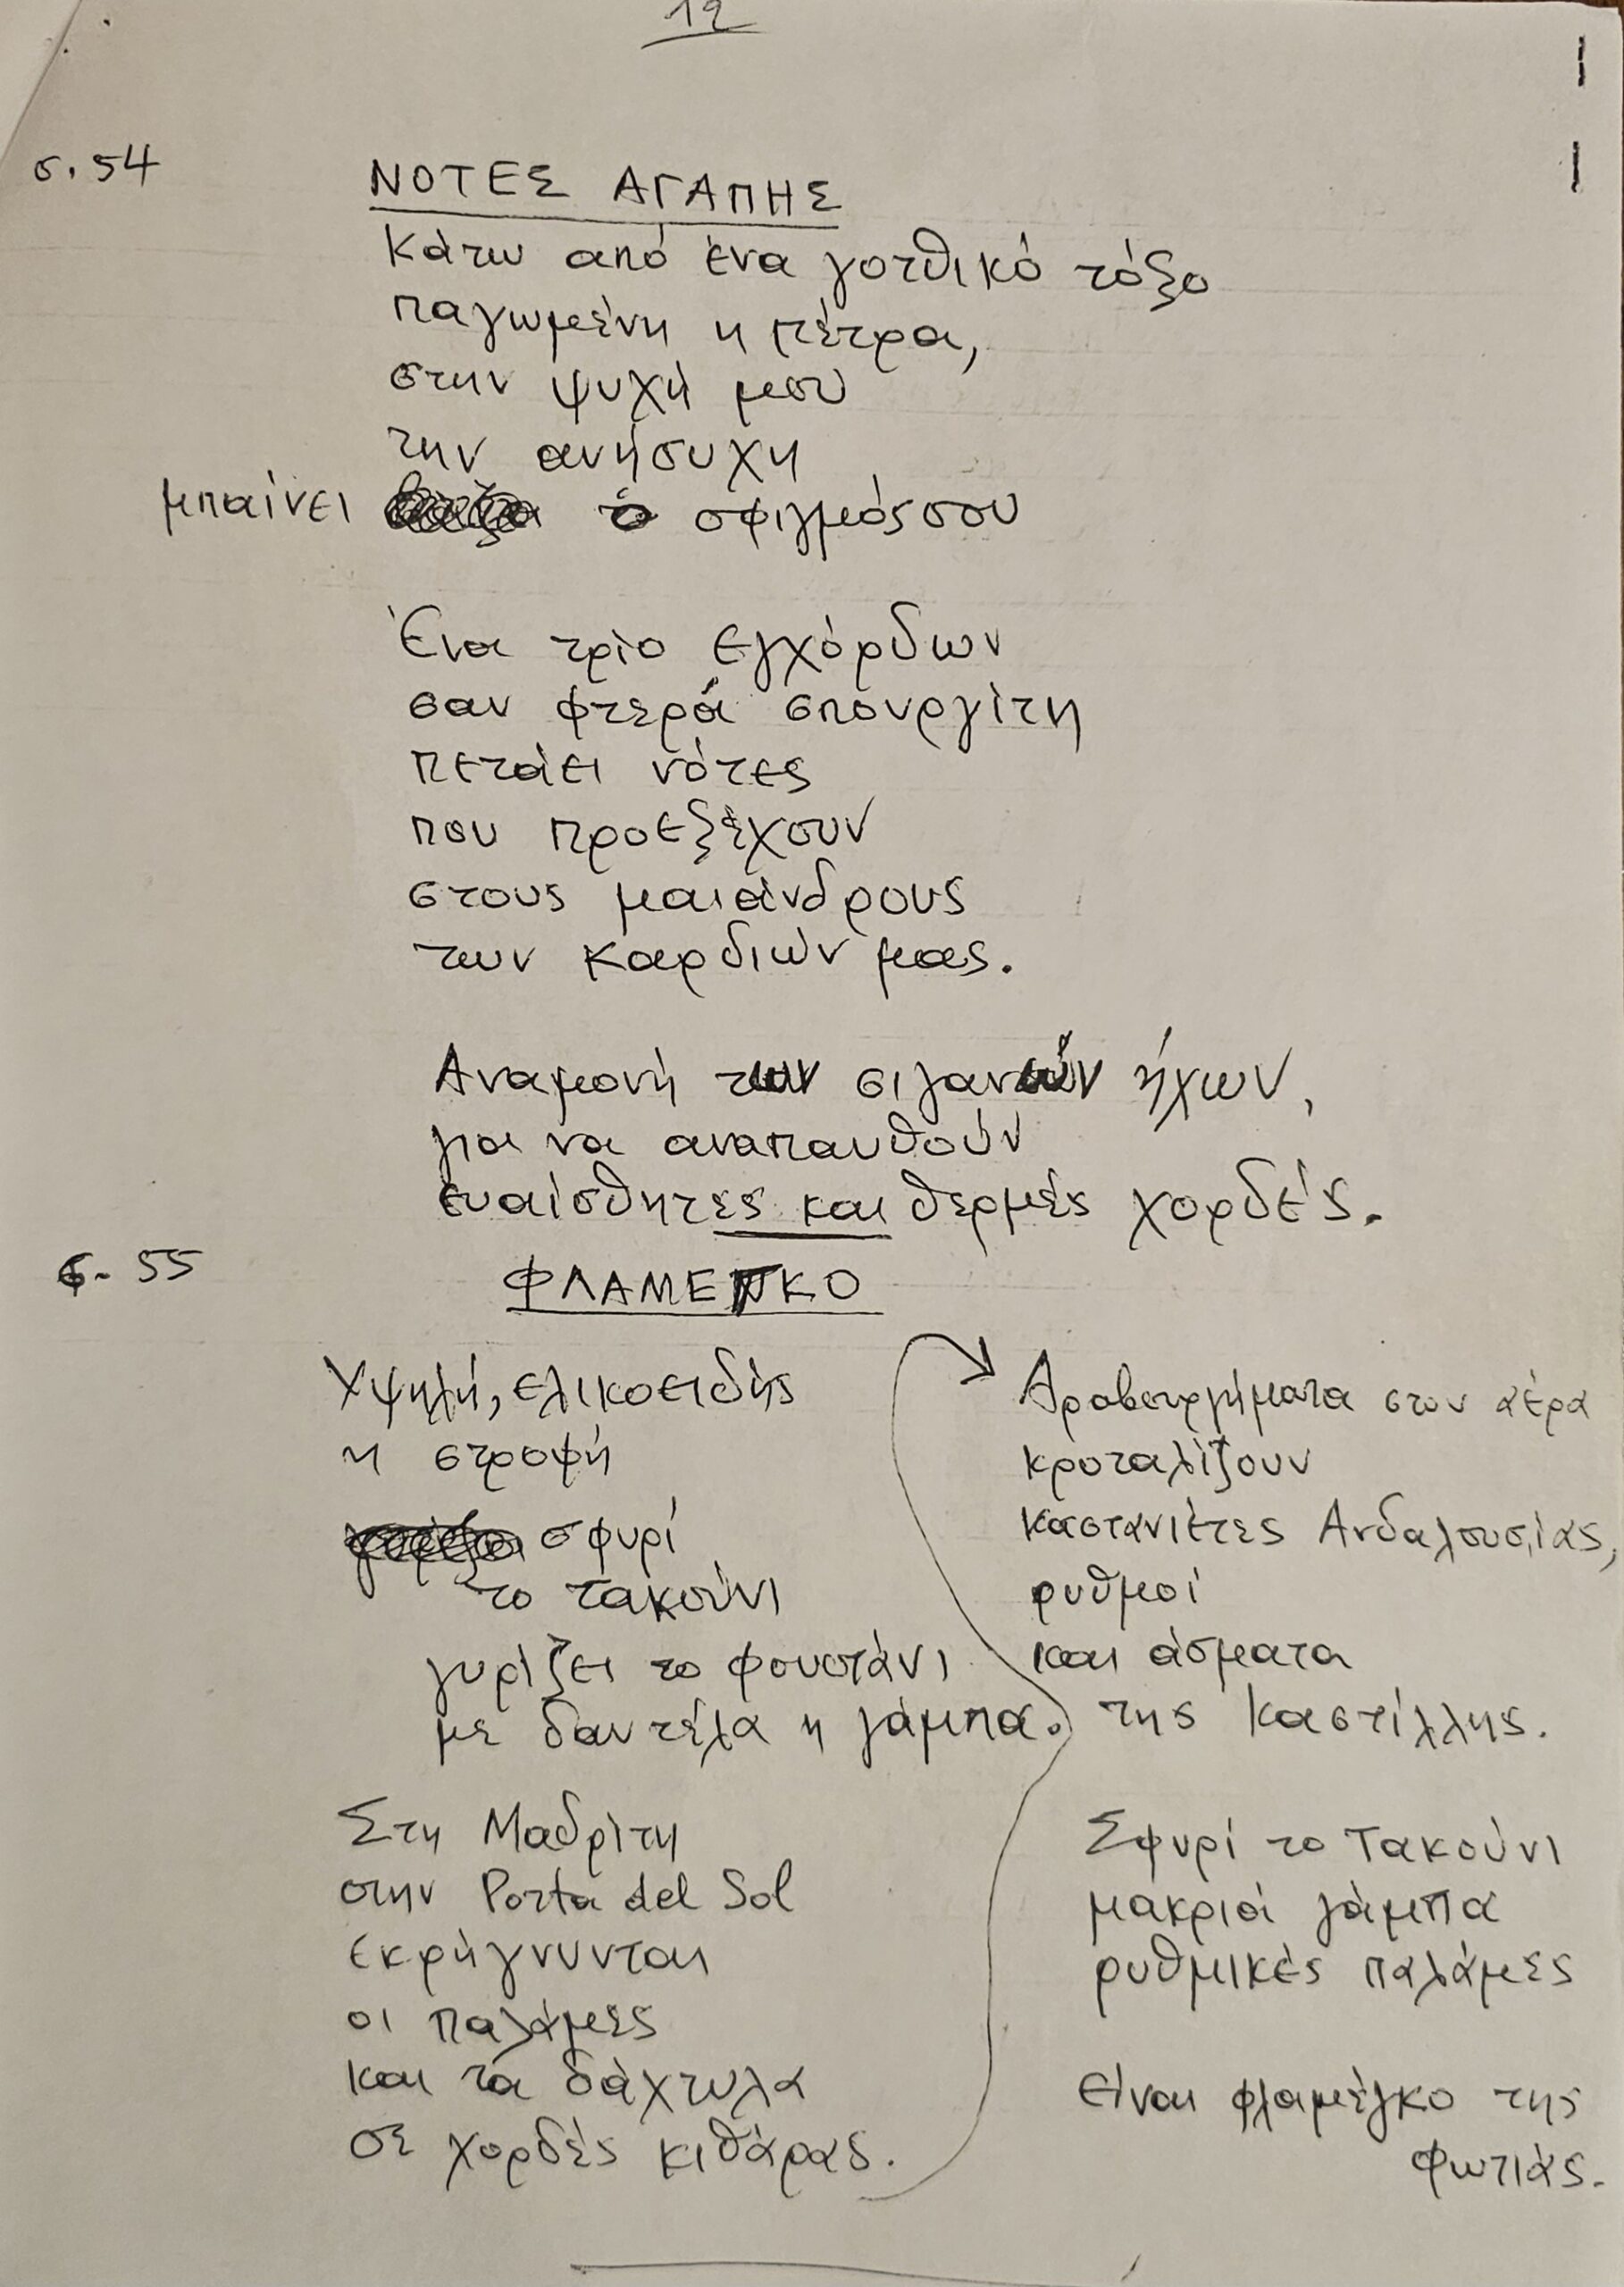 12
σ. 54
ΝΟΤΕΣ ΑΓΑΠΗΣ
Κάτω από ένα γοτθικό τόξο
παγωμένη η πέτρα,
στην ψυχή μου
την ανήσυχη
μπαίνει ο σφιγμός σου
Ένα τρίο εγχόρδων
σαν φτερά σπουργίτη
πετάει νότες
που προεξέχουν
στους μαιάνδρους
των καρδιών μας.
Αναμονή των σιγανών ήχων,
για να αναπαυθούν
ευαίσθητες και θερμές χορδές.
σ. 55
ΦΛΑΜΕΓΚΟ
Υψηλή, ελικοειδής
η στροφή
σφυρί
το τακούνι
γυρίζει το φουστάνι
με δαντέλα η γάμπα.
Στη Μαδρίτη
στην Porta del Sol
εκρήγνυνται
οι παλάμες
και τα δάχτυλα
σε χορδές κιθάρας.
Αραβουργήματα στον αέρα
κροταλίζουν
καστανιέτες Ανδαλουσίας,
ρυθμοί
και άσματα
της Καστίλλης.
Σφυρί το τακούνι
μακριά γάμπα
ρυθμικές παλάμες
είναι φλαμέγκο της
φωτιάς.